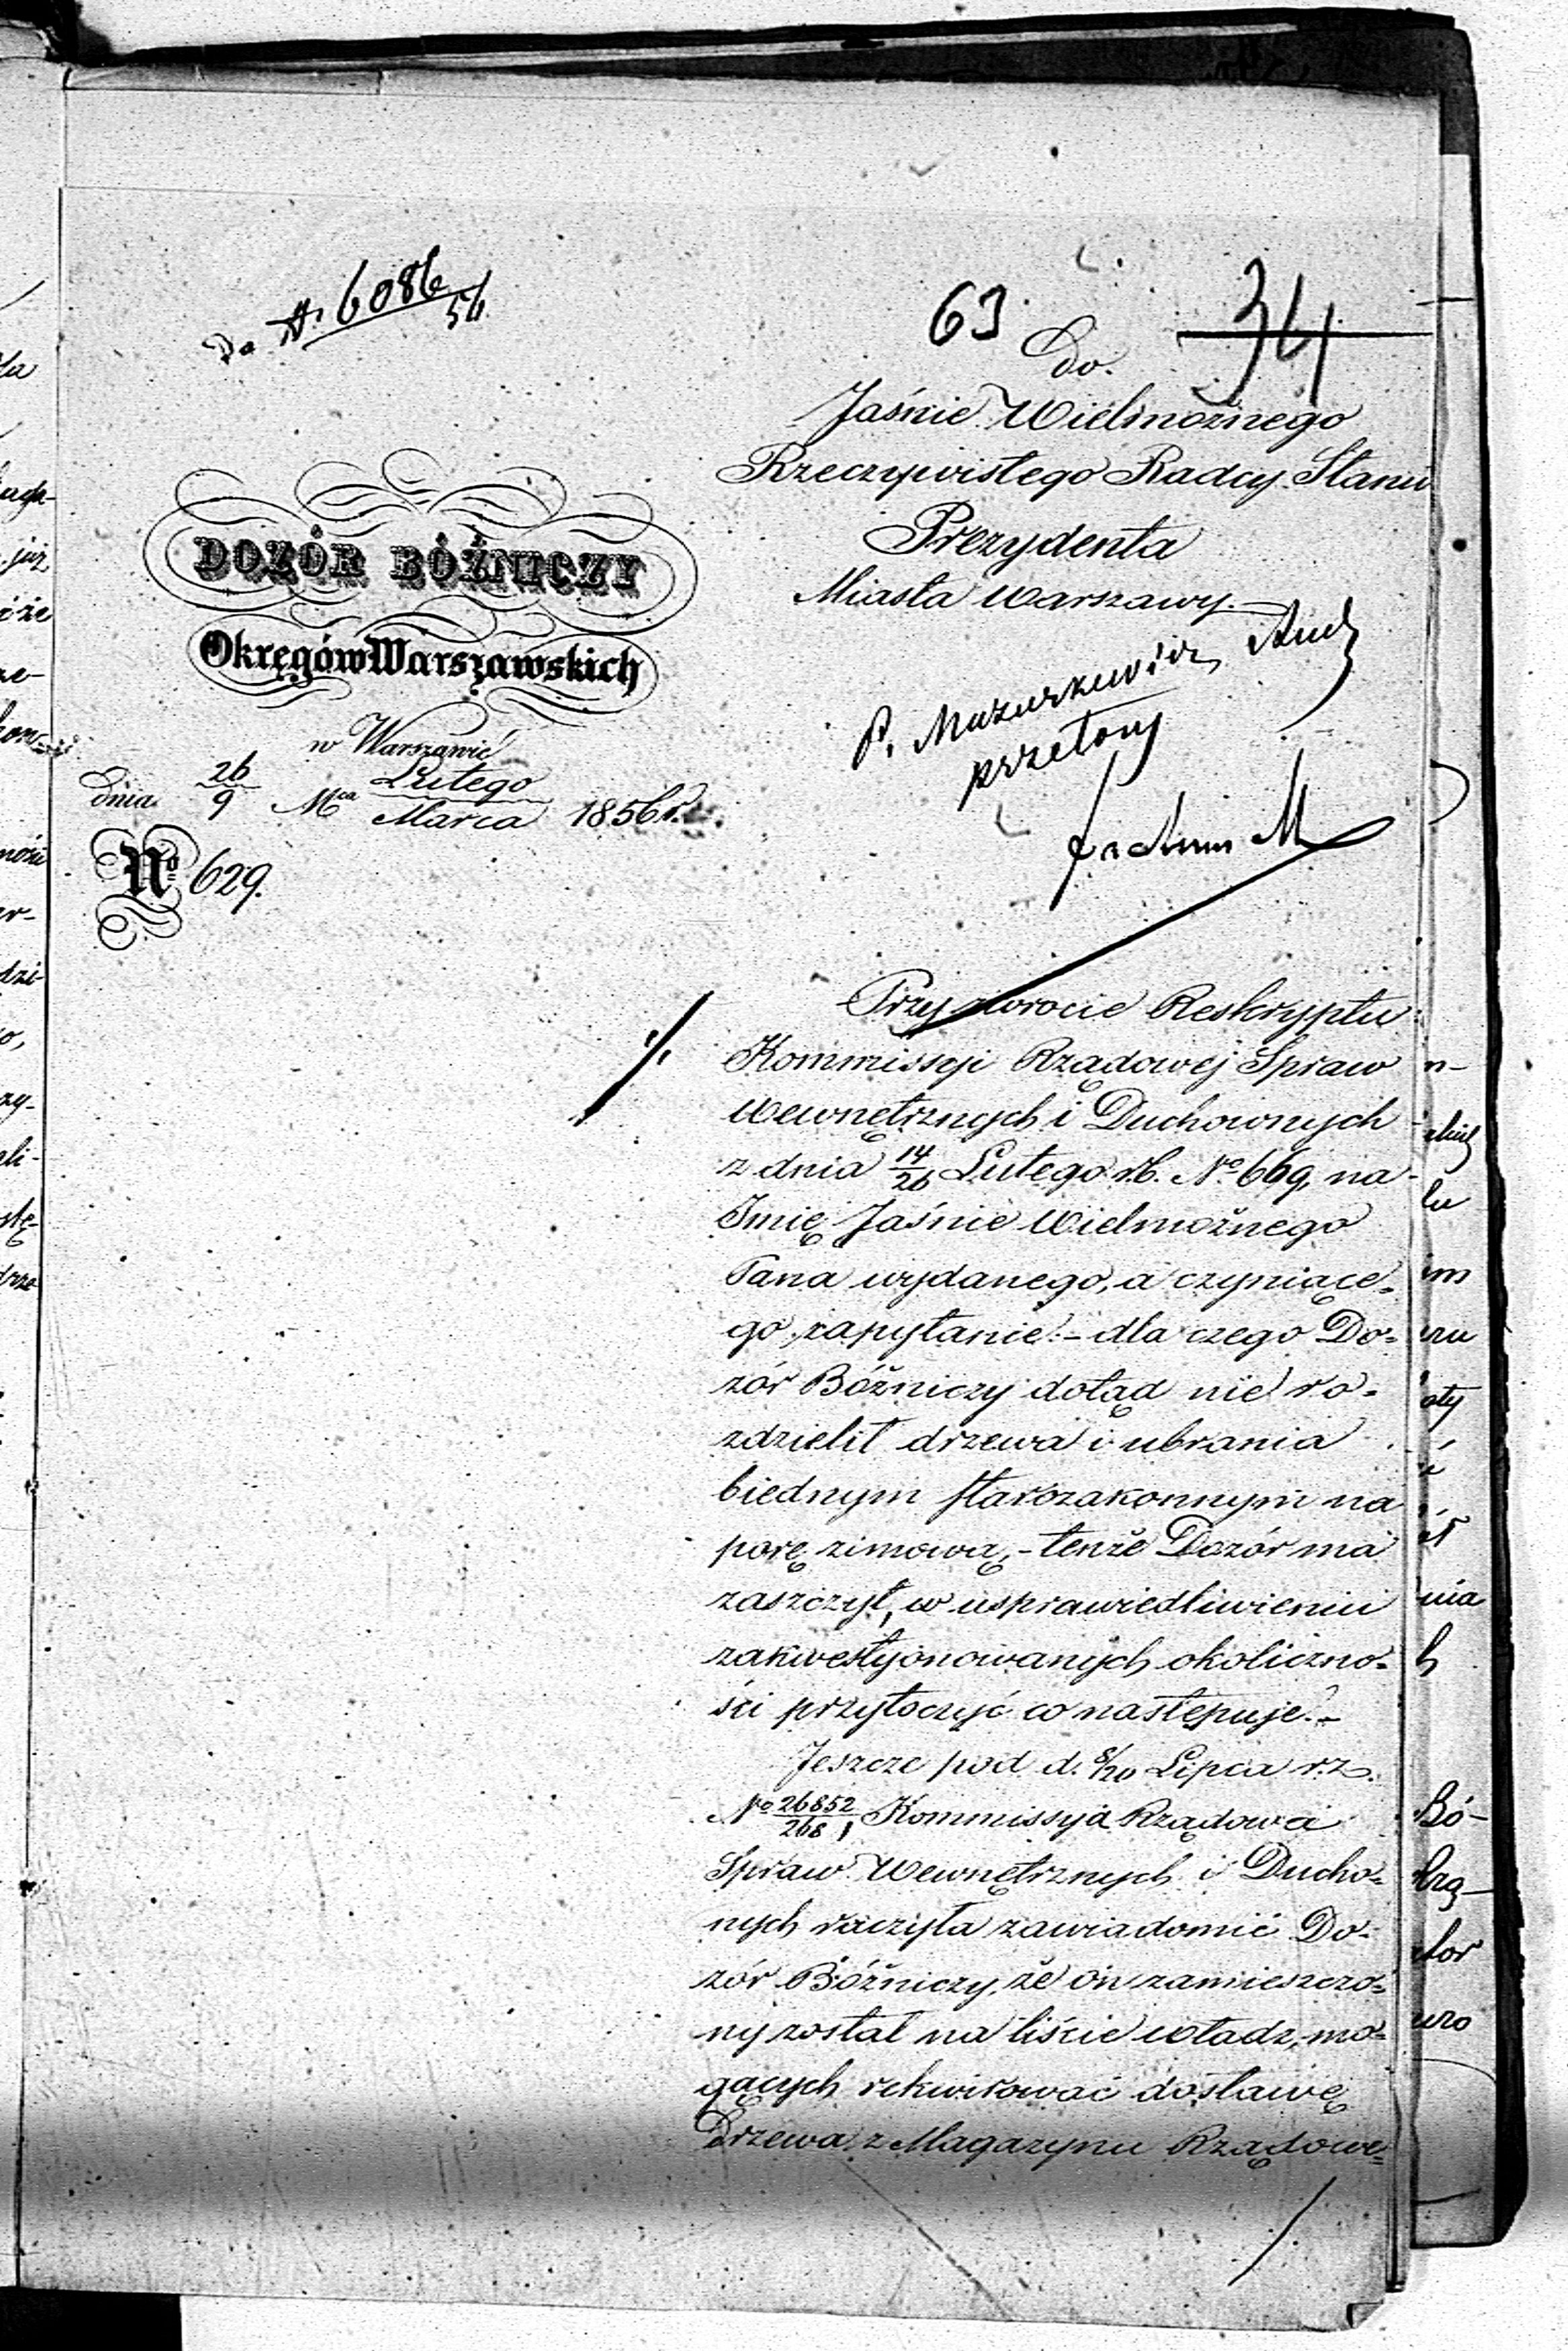 Do N. 6086/56
63
34
Do.
Jaśnie Wielmożnego
Rzeczywistego Radcy Stanu
Prezydenta
Miasta Warszawy.
DOZÓR BÓŻNICZY
Okręgów Warszawskich
w Warszawie
dnia 26/9 Mca Lutego/Marca 1856 r.
No 629.
P. Mazurkiewicz
Przy zwrocie Reskryptu
Kommissyi Rządowéj Spraw
Wewnętrznych i Duchownych
z dnia 14/26 Lutego r.b. No 669, na
Imię Jaśnie Wielmożnego
Pana wydanego, a czyniące=
go zapytanie: - dla czego Do=
zór Bóżniczy dotąd nie ro=
zdzielił drzewa i ubrania
biednym starozakonnym na
porę zimową, - tenże Dozór ma
zaszczyt, w usprawiedliwieniu
zakwestyonowanych okoliczno=
ści przytoczyć co następuje: -
Jeszcze pod d. 8/20 Lipca r.z.
No 26852/268, Kommissya Rządowa
Spraw Wewnętrznych i Ducho=
nych raczyła zawiadomić Do=
zór Bóżniczy, że on zamieszczo=
ny został na liście władz, mo=
gących rekwirować dostawę
Drzewa z Magazynu Rządowe=